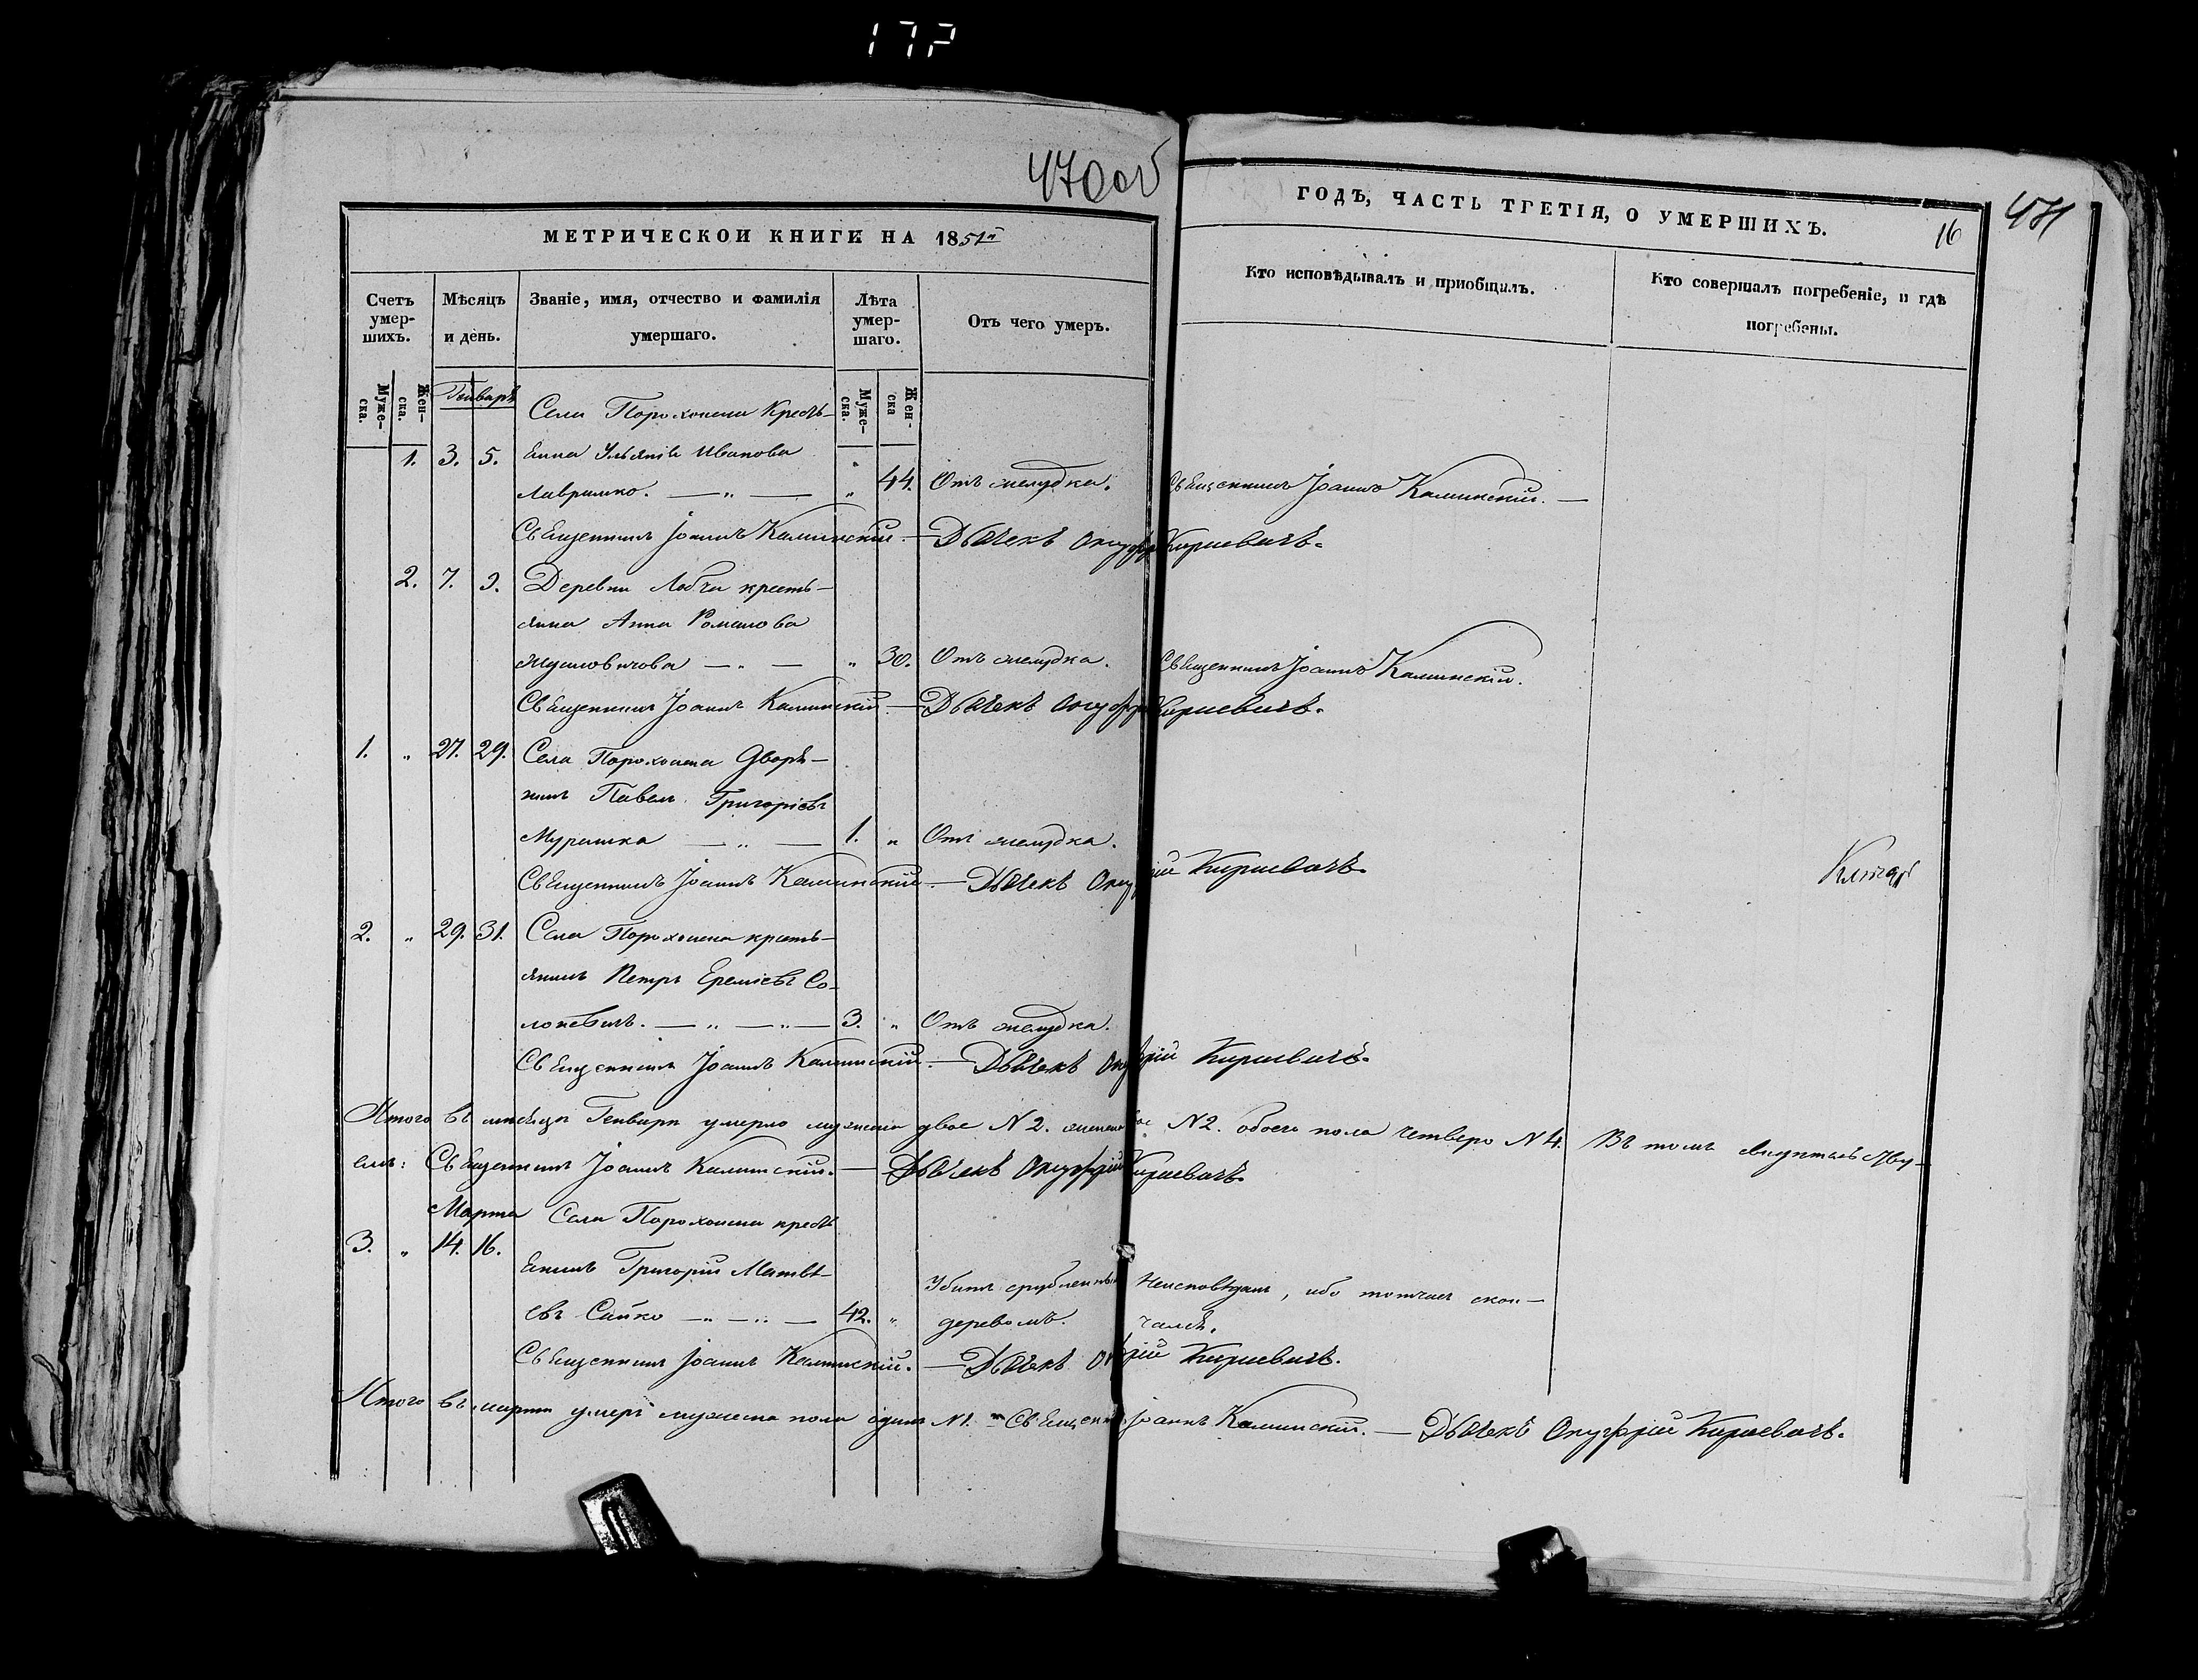 470об
471
МЕТРИЧЕСКОЙ КНИГИ НА 1851й
ГОДЪ, ЧАСТЬ ТРЕТІЯ, О УМЕРШИХЪ.
16
Счетъ умер-шихъ.
Муже-ска.
Жен-ска.
Мѣсяцъ и день.
Званіе, имя, отчество и фамилія умершаго.
Лѣта умер-шаго.
Муже-ска.
Жен-ска
Отъ чего умеръ.
Кто исповѣдывалъ и приобщилъ.
Кто совершалъ погребеніе, и гдѣ погребены.
Генваръ
Села Порохонска Кресть-
1. 3. 5. янка Ульянія Иванова
Лавришко. — „ — „ 44. Отъ желудка. Священникъ Іоаннъ Калинскій. —
Священникъ Іоаннъ Калинскій. — Дьячекъ Онуфрій Кириевичъ.
2. 7. 9. Деревни Лобча кресть-
янка Анна Романова
— „ — „ 30. Отъ желудка. Священникъ Іоаннъ Калинскій.
Священникъ Іоаннъ Калинскій. — Дьячекъ Онуфрій Кириевичъ.
1. „ 27. 29. Села Порохонска Дворя-
нинъ Павелъ Григоріевъ
Мурашка — „ — 1. „ Отъ желудка.
Священникъ Іоаннъ Калинскій. — Дьячекъ Онуфрій Кириевичъ.
2. „ 29. 31. Села Порохонска кресть-
янинъ Петръ Еремієвъ Со-
лоневичъ. — „ — „ — 3. „ Отъ желудка.
Священникъ Іоаннъ Калинскій. — Дьячекъ Онуфрій Кириевичъ.
Итого въ мѣсяцѣ Генварѣ умерло мужеска двое N 2. женска двое N 2. обоего пола четверо N 4. Въ томъ
емъ: Священникъ Іоаннъ Калинскій. — Дьячекъ Онуфрій Кириевичъ.
Марта Села Порохонска кресть
3. „ 14. 16.
янинъ Григорій Матвѣ-
евъ Сайко — „ — „ — 42. „ Убитъ срубленнымъ деревомъ. Неисповѣданъ, ибо тотчасъ скон-
чался.
Священникъ Іоаннъ Калинскій. — Дьячекъ Онуфрій Кириевичъ.
Итого въ мартѣ умеръ мужеска пола одинъ N 1. — Священникъ Іоаннъ Калинскій. — Дьячекъ Онуфрій Кириевичъ.